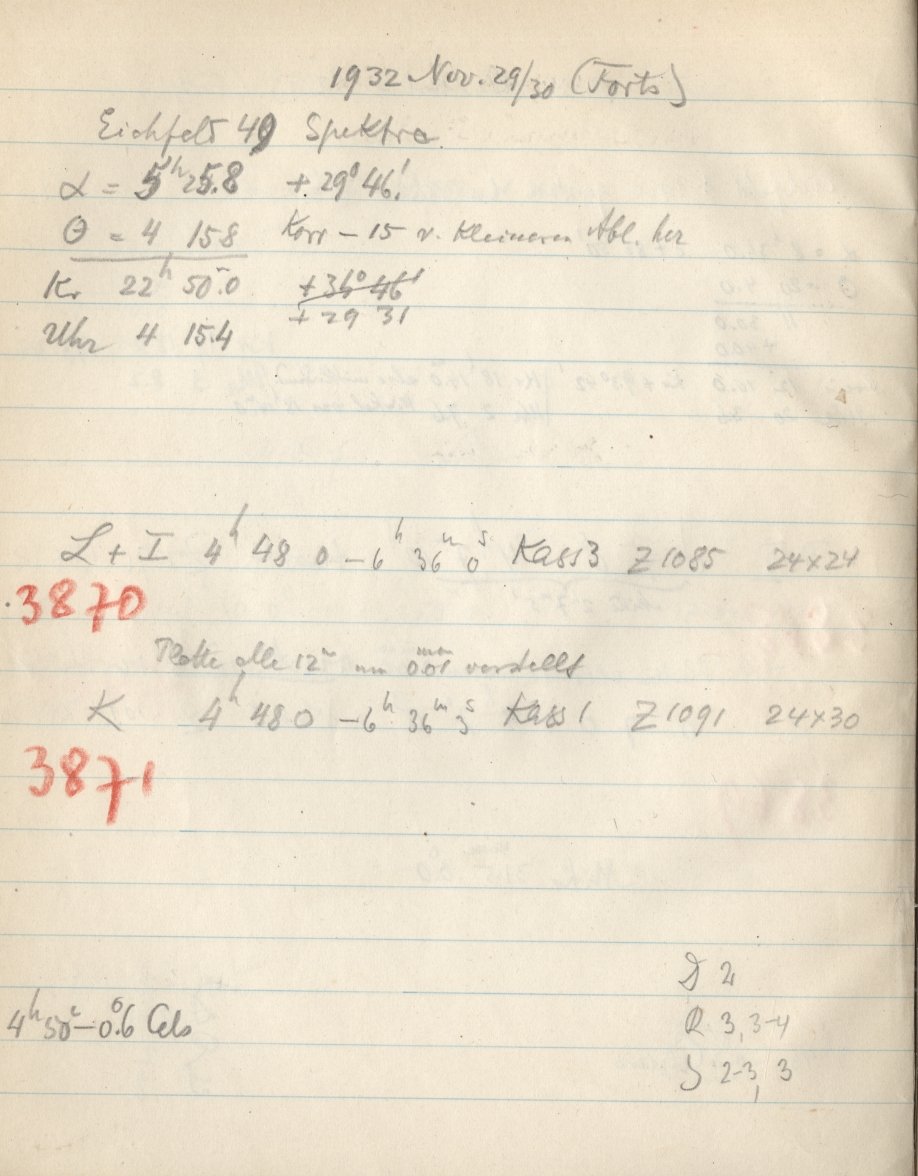 1932 Nov. 29/30 (Forts)
Eichfeld 49 Spektra
α = 5ʰ 25.8 + 29° 46'
Θ = 4 15 8 Korr – 15 v. kleineren Abl. her
Kr 22ʰ 50.0 + 36° 46'
+ 29 31
Uhr 4 15.4
L + I 4ʰ 48 0 – 6ʰ 36ᵐ 0ˢ Kass 3 Z 1085 24×24
3870
Platte alle 12ᵐ um 0.01ᵐᵐ verstellt
K 4ʰ 48 0 – 6ʰ 36ᵐ 3ˢ Kass 1 Z 1091 24×30
3871
D 2
4ʰ 50ᵐ – 0°.6 Cels
R 3, 3-4
S 2-3, 3